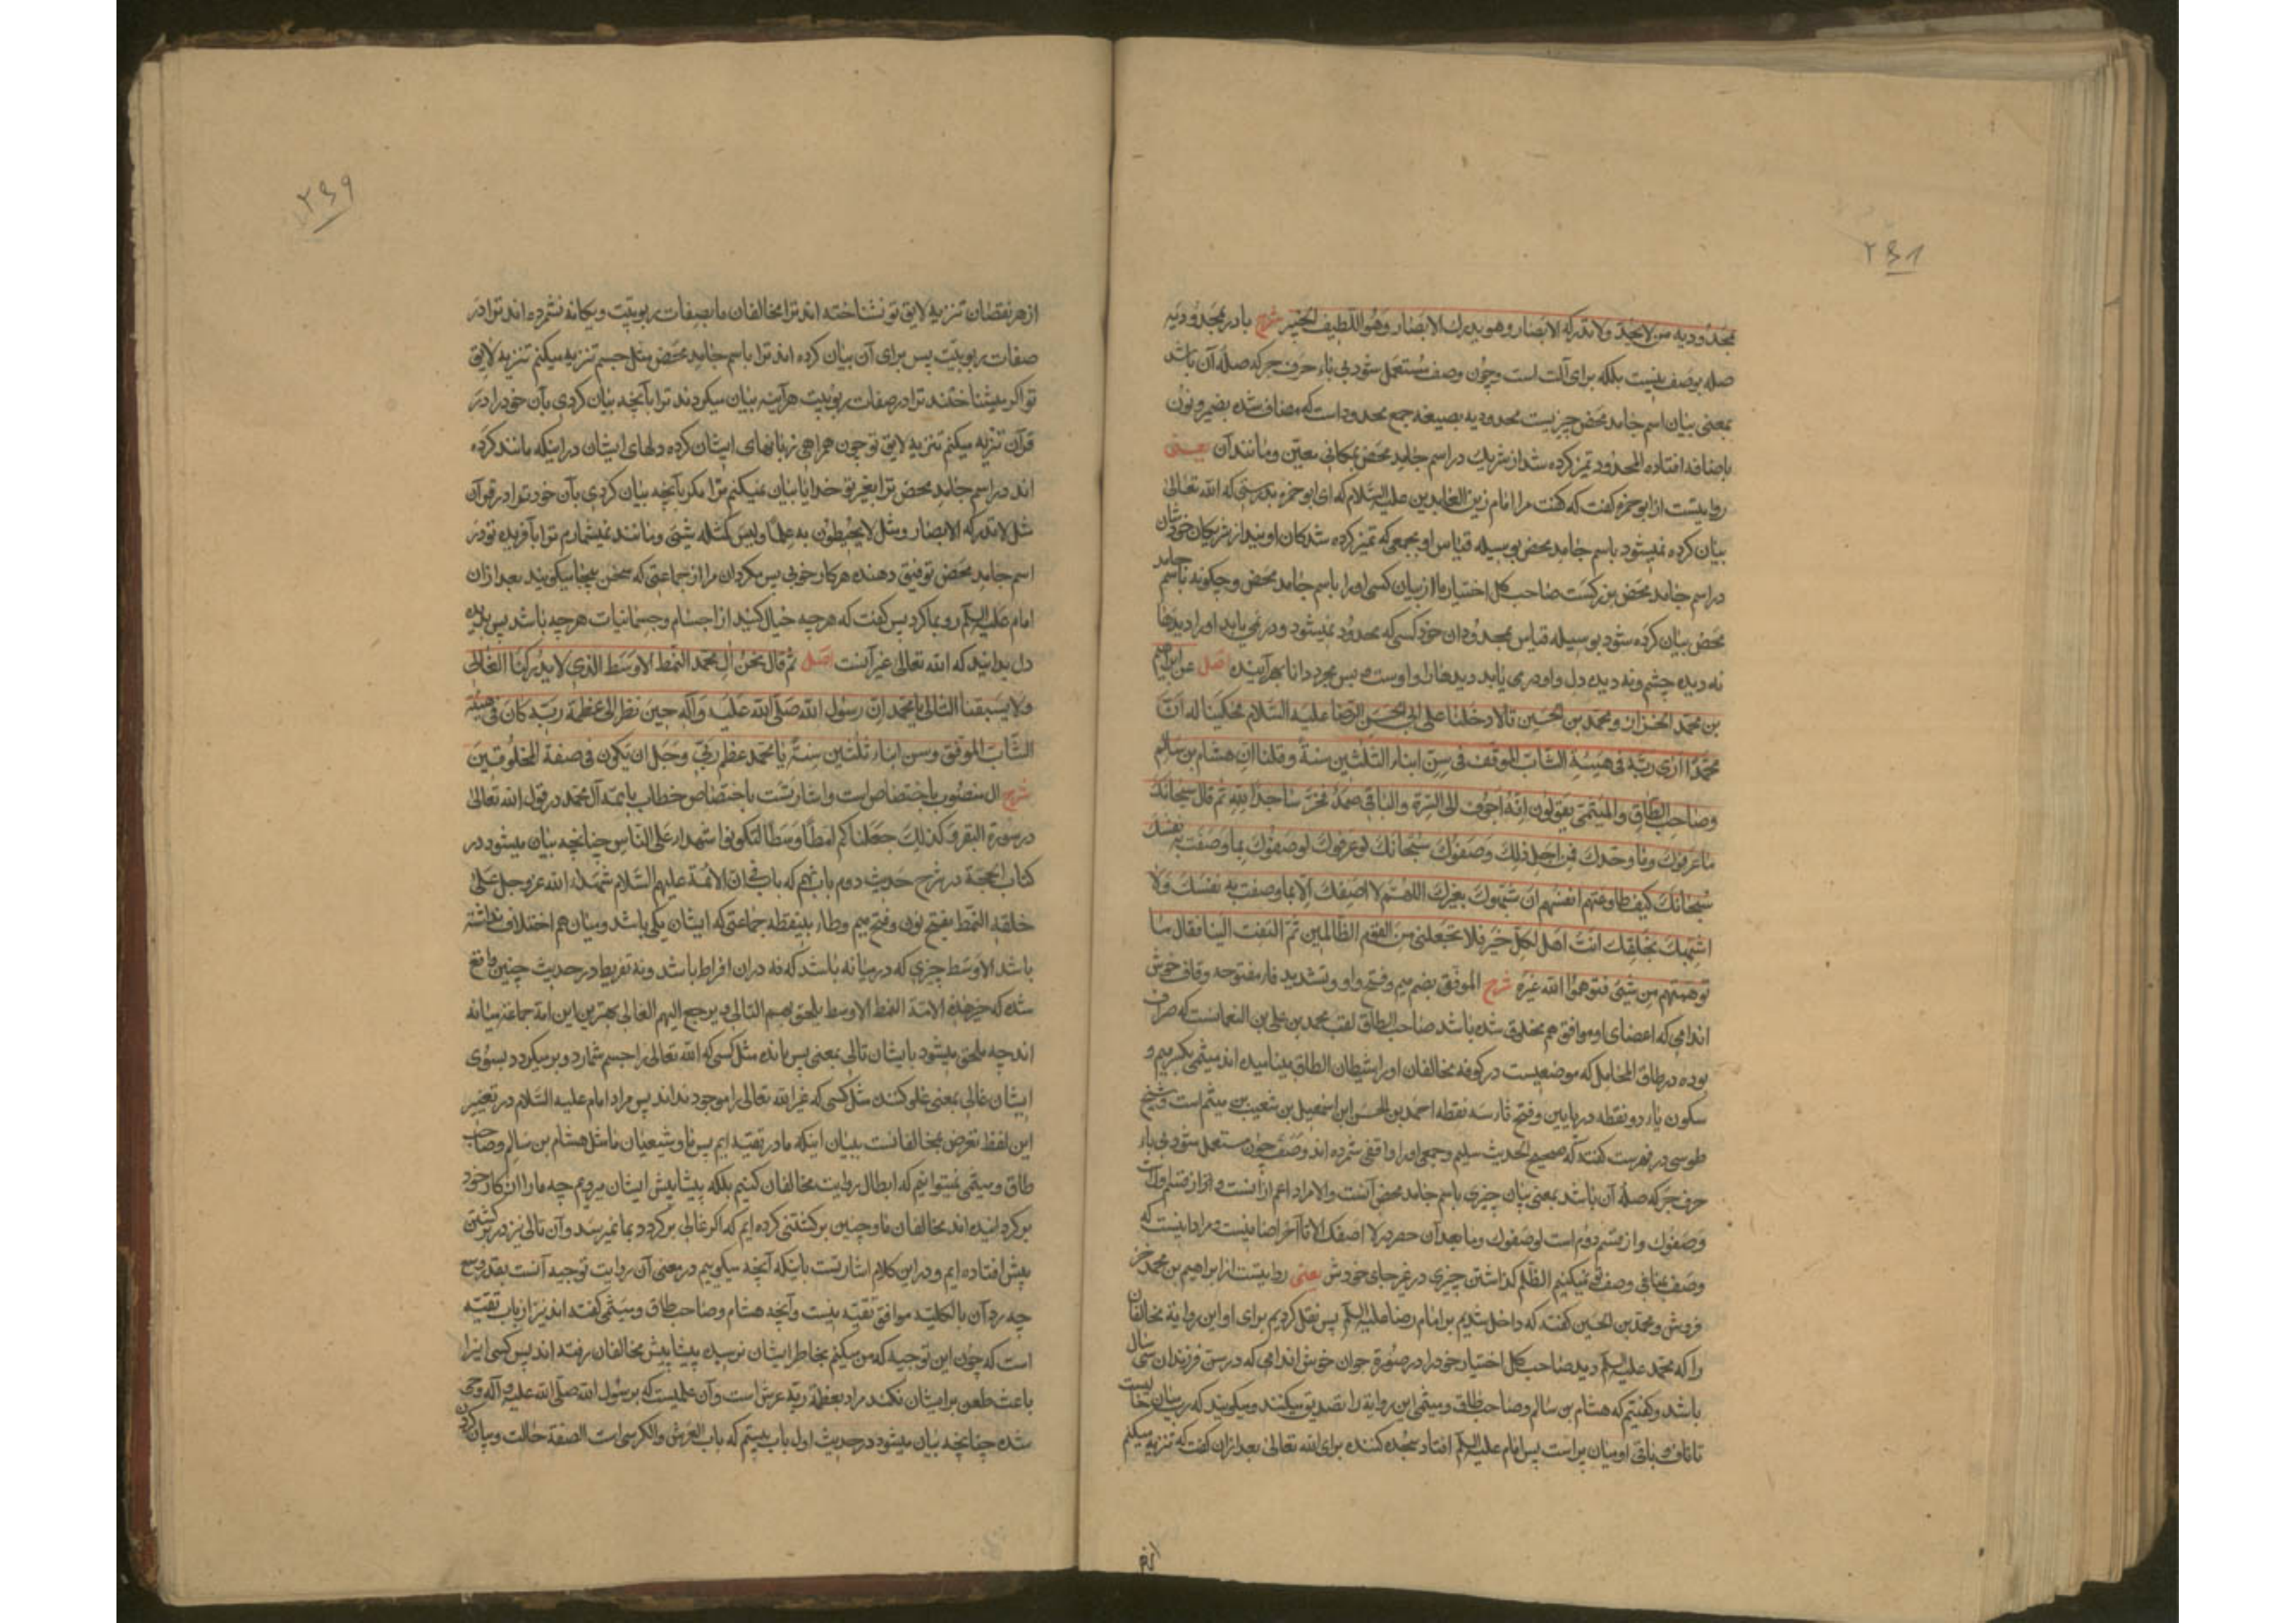 ۲۴۸
بمحدودیه من لا یحد و لا تدرکه الابصار و هو یدرک الابصار و هو اللطیف الخبیر شرح با در بمحدودیه
صله بوصف نیست بلکه برای آلت است و چون وصف مستعمل شود بی باء حرف جر که صلۀ آن باشد
بمعنی بیان اسم جامد محض چیزیست محدودیه بصیغه جمع محدود است که مضاف شده بضمیر و نون
باضافه افتاده المحدود تمیز کرده شد از شریک در اسم جامد محض بمکانی معین و مانند آن یعنی
روایتست از ابو حمزه گفت که گفت مرا امام زین العابدین علیه السلام که ای ابو حمزه بدرستی که الله تعالی
بیان کرده نمیشود باسم جامد محض بوسیله قیاس او بجمعی که تمیز کرده شدگان اویند از شریکان خودشان
در اسم جامد محض بزرگست صاحب کل اختیار ما از بیان کسی او را باسم جامد محض و چگونه باسم جامد
محض بیان کرده شود بوسیله قیاس بمحدودان خود کسی که محدود نمیشود و در نمی یابد او را دیدها
نه دیده چشم و نه دیده دل و او در می یابد دیدها را و اوست و بس مجرد دانا بهر آینده اصل عن ابراهیم
بن محمد الخزاز و محمد بن الحسین قالا دخلنا علی ابی الحسن الرضا علیه السلام فحکینا له ان
محمدا رای ربه فی هیئة الشاب الموفق فی سن ابناء الثلثین سنة و قلنا ان هشام بن سالم
و صاحب الطاق و المیثمی یقولون انه اجوف الی السرة و الباقی صمد فخر ساجدا لله ثم قال سبحانک
ما عرفوک و ما وحدوک فمن اجل ذلک وصفوک سبحانک لو عرفوک لوصفوک بما وصفت به نفسک
سبحانک کیف طاوعتهم انفسهم ان شبهوک بغیرک اللهم لا اصفک الا بما وصفت به نفسک و لا
اشبهک بخلقک انت اهل لکل خیر فلا تجعلنی من القوم الظالمین ثم التفت الینا فقال ما
توهمتم من شیئ فتوهموا الله غیره شرح الموفق بضم میم و فتح واو و تشدید فاء مفتوحه و قاف خوش
اندامی که اعضای او موافق هم مخلوق شده باشد صاحب الطاق لقب محمد بن علی بن النعمانست که صراف
بوده در طاق المحامل که موضعیست در کوفه مخالفان او را شیطان الطاق مینامیده اند میثمی بکسر میم و
سکون یاء دو نقطه در پایین و فتح ثاء سه نقطه احمد بن الحسن ابن اسمعیل بن شعیب بن میثم است و شیخ
طوسی در فهرست گفته که صحیح الحدیث سلیم و جمعی او را واقفی شمرده اند وصف چون مستعمل شود بی باء
حرف جر که صلۀ آن باشد بمعنی بیان چیزی باسم جامد محض آنست و الا مراد اعم ازانست و از قسم اولست
وصفوک و از قسم دوم است لوصفوک و ما بعد آن حصر در لا اصفک الا تا آخر اضافیست و مراد اینست که
وصف بمنافی وصف تو نمیکنیم الظلم گذاشتن چیزی در غیر جای خودش یعنی روایتست از ابراهیم بن محمد خز
فروش و محمد بن الحسین گفتند که داخل شدیم بر امام رضا علیه السلم پس نقل کردیم برای او این روایة مخالفان
را که محمد علیه السلم دید صاحب کل اختیار خود را در صورة جوان خوش اندامی که در سن فرزندان سی سال
باشد و گفتیم که هشام بن سالم و صاحب طاق و میثمی این روایة را تصدیق میکنند و میگویند که رب میان خالیست
تا ناف و باقی او میان پر است پس امام علیه السلم افتاد سجده کننده برای الله تعالی بعد ازان گفت که تنزیه میکنم
از هر
۲۴۹
از هر نقصان تنزیه لایق تو نشناخته اند ترا مخالفان ما بصفات ربوبیت و یگانه نشمرده اند ترا در
صفات ربوبیت پس برای آن بیان کرده اند ترا باسم جامد محض مثل جسم تنزیه میکنم تنزیه لایق
تو اگر میشناختند ترا در صفات ربوبیت هر آینه بیان میکردند ترا بآنچه بیان کردی بآن خود را در
قرآن تنزیه میکنم تنزیه لایق تو چون همراهی زبانهای ایشان کرده دلهای ایشان در اینکه مانند کرده
اند در اسم جامد محض ترا بغیر تو خدایا بیان نمیکنم ترا مگر بآنچه بیان کردی بآن خود ترا در قرآن
مثل لا تدرکه الابصار و مثل لا یحیطون به علما و لیس کمثله شیئ و مانند نمیشمارم ترا بآفریده تو در
اسم جامد محض توفیق دهنده هر کار خوبی پس مگردان مرا از جماعتی که سخن بیجا میگویند بعد ازان
امام علیه السلم رو بما کرد پس گفت که هرچه خیال کنید از اجسام و جسمانیات هرچه باشد پس بدیده
دل بدانید که الله تعالی غیر آنست اصل ثم قال نحن آل محمد النمط الاوسط الذی لا یدرکنا الغالی
و لا یسبقنا التالی یا محمد ان رسول الله صلی الله علیه و آله حین نظر الی عظمة ربه کان فی هیئة
الشاب الموفق و سن ابناء ثلثین سنة یا محمد عظم ربی و جل ان یکون فی صفة المخلوقین
شرح آل منصوب باختصاص است و اشارتست باختصاص خطاب بائمه آل محمد در قول الله تعالی
در سورة البقره کذلک جعلناکم امة وسطا لتکونوا شهداء علی الناس چنانچه بیان میشود در
کتاب الحجة در شرح حدیث دوم باب نهم که باب فی ان الائمة علیهم السلام شهداء الله عز و جل علی
خلقه النمط بفتح نون و فتح میم و طاء بینقطه جماعتی که ایشان یکی باشد و میان هم اختلاف نداشته
باشد الاوسط چیزی که در میانه باشد که نه دران افراط باشد و نه تفریط در حدیث چنین واقع
شده که خیر هذه الامة النمط الاوسط یلحق بهم التالی و یرجع الیهم الغالی بهترین این امة جماعة میانه
اند چه ملحق میشود بایشان تالی بمعنی پس مانده مثل کسی که الله تعالی را جسم شمارد و بر میگردد بسوی
ایشان غالی بمعنی غلو کننده مثل کسی که غیر الله تعالی را موجود نداند پس مراد امام علیه السلام در تغییر
این لفظ تعرض بمخالفانست ببیان اینکه ما در تقیه ایم پس ما و شیعیان ما مثل هشام بن سالم و صاحب
طاق و میثمی نمیتوانیم که ابطال روایت مخالفان کنیم بلکه پیشاپیش ایشان میرویم چه ما را از کار خود
برگردانیده اند مخالفان ما و چنین برگشتنی کرده ایم که اگر غالی برگردد بما نمیرسد و آن تالی نیز در برگشتن
پیش افتاده ایم و در این کلام اشارتست باینکه آنچه میگوییم در معنی آن روایت توجیه آنست بقدر وسع
چه رد آن بالکلیه موافق تقیه نیست و آنچه هشام و صاحب طاق و میثمی گفته اند نیز از باب تقیه
است که چون این توجیه که من میکنم بخاطر ایشان نرسیده پیشاپیش مخالفان رفته اند پس کسی اینرا
باعث طعن بر ایشان نکند مراد بعظمة ربه عرش است و آن علمیست که برسول الله صلی الله علیه و آله وحی
شده چنانچه بیان میشود در حدیث اول باب بیستم که باب العرش و الکرسی است الصفة حالت و بیان کردن